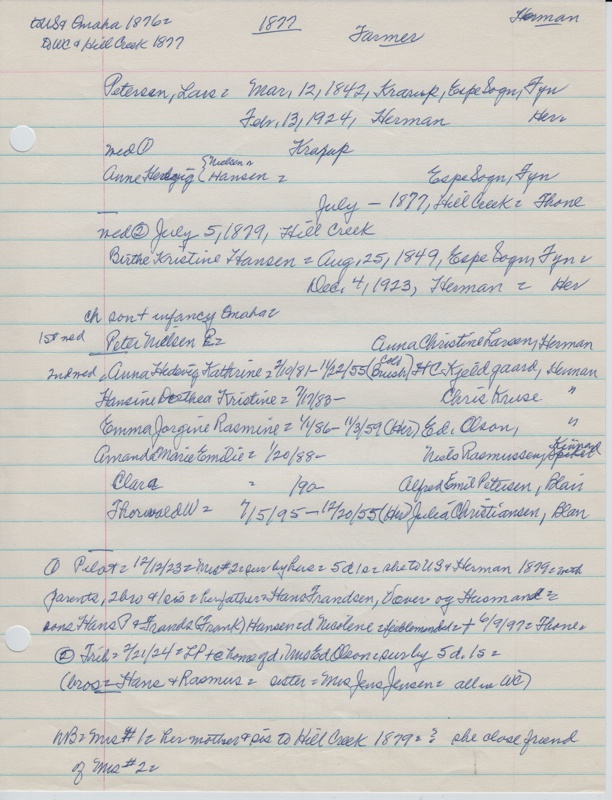 to US & Omaha 1876 =
to WC & Hill Creek 1877
1877
Farmer
Herman
Petersen, Lars = Mar, 12, 1842, Krarup, Espe Sogn, Fyn
Febr. 13, 1924, Herman Her
med ① Krarup
Anne Hedvig {Nielsen = Hansen = Espe Sogn, Fyn
July – 1877, Hill Creek = Thone
med ② July 5, 1879, Hill Creek
Birthe Kristine Hansen = Aug, 25, 1849, Espe Sogn, Fyn =
Dec. 4, 1923, Herman = Her
ch son + infancy Omaha =
1st med Peter Nielsen P = Anna Christine Larsen, Herman
2nd med, Anna Hedvig Kathrine = 2/10/81 – 11/22/55 (Cold Brush) H C. Kjeldgaard, Herman
Hansine Dorthea Kristine = 7/17/83 – Chris Kruse "
Emma Jorgine Rasmine = 4/1/86 – 11/3/59 (Her) Ed. Olson, "
Amanda Marie Emilie = 1/20/88 – Niels Rasmussen,
Clara = /90 – Alfred Emil Petersen, Blair
Thorwald W = 7/5/95 – 12/20/55 (Her) Julia Christiansen, Blair
① Pilot = 12/12/23 = Mrs #2 = sur by hus = 5 d 1 s = she to US & Herman 1879 = with
parents, 2 bro & 1 sis = her father = Hans Frandsen, Væver og Husmand =
sons Hans P & Frands (Frank) Hansen = d Nicolene = + 6/9/97 = Thone =
② Trib = 2/21/24 = LP + @ home gd, Mrs Ed Olson = sur by 5 d. 1 s =
(bros = Hans + Rasmus = sister = Mrs Jens Jensen = all in WC)
NB = Mrs #1 = her mother & sis to Hill Creek 1879 = ? she close friend
of Mrs #2 =